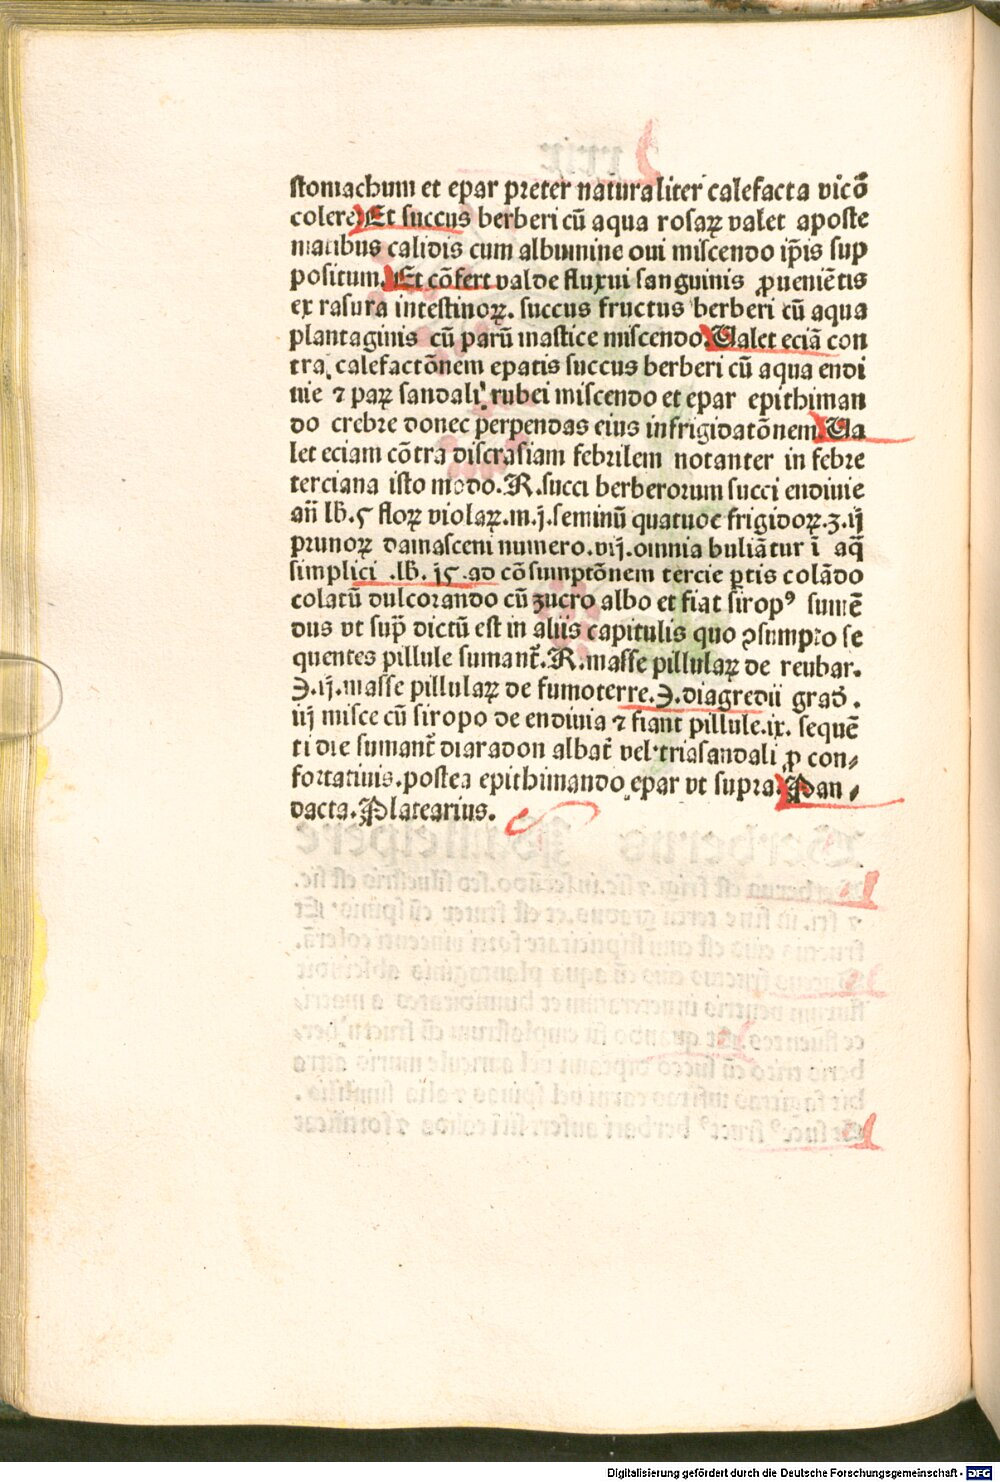 stomachum et epar preter naturaliter calefacta vicō
colere. Et succus berberi cū aqua rosaꝝ valet aposte
matibus calidis cum albumine oui miscendo ip̄is sup
positum. Et cōfert valde fluxui sanguinis ꝓueniētis
ex rasura intestinoꝝ. succus fructus berberi cū aqua
plantaginis cū parū mastice miscendo. Ualet eciā con
tra calefactōnem epatis succus berberi cū aqua endi
uie ⁊ paꝝ sandali rubei miscendo et epar epithiman
do crebre donec perpendas eius infrigidatōnem. Ua
let eciam cōtra discrasiam febrilem notanter in febre
terciana isto modo. R. succi berberorum succi endiuie
an̄ lb. ς floꝝ violaꝝ. m. j. seminū quatuoc frigidoꝝ. ʒ. ij
prunoꝝ damasceni numero. vij. omnia buliātur ī aq̄
simplici .lb. jς. ad cōsumptōnem tercie ꝑtis colādo
colatū dulcorando cū zucro albo et fiat siropꝰ sumē
dus vt sup̄ dictū est in aliis capitulis quo ꝯsumpto se
quentes pillule sumant̄. R. masse pillulaꝝ de reubar.
℈. ij. masse pillulaꝝ de fumoterre. ℈. diagredii grad̄.
iij misce cū siropo de endiuia ⁊ fiant pillule. ix. sequē
ti die sumant̄ diaradon albat̄ vel triasandali ꝓ con⸗
fortatiuis. postea epithimando epar vt supra. Pan⸗
dacta. Platearius.